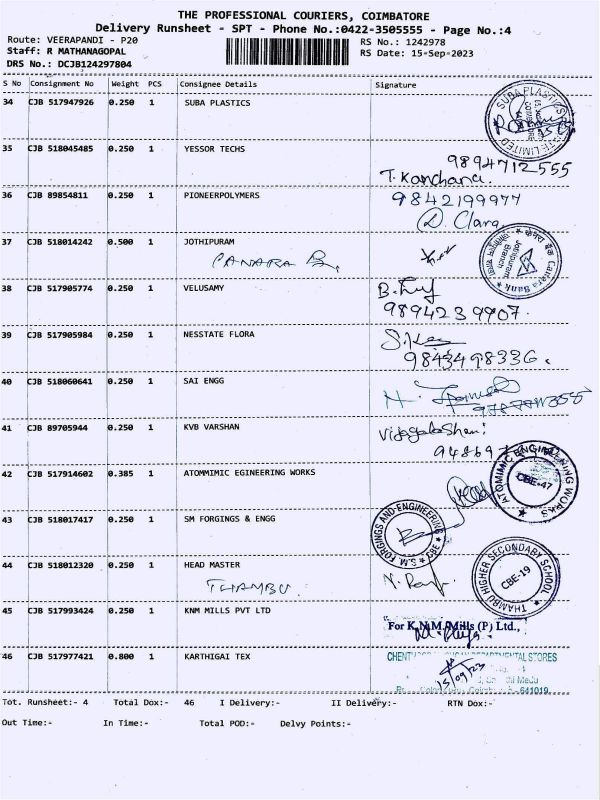 THE PROFESSIONAL COURIERS, COIMBATORE
Delivery Runsheet - SPT - Phone No.:0422-3505555 - Page No.:4
Route: VEERAPANDI - P20
RS No.: 1242978
Staff: R MATHANAGOPAL
RS Date: 15-Sep-2023
DRS No.: DCJB124297804
S No Consignment No Weight PCS Consignee Details Signature
34 CJB 517947926 0.250 1 SUBA PLASTICS
SUBA PLASTICS LIMITED
35 CJB 518045485 0.250 1 YESSOR TECHS
9894712555
T. Kanchana.
36 CJB 89854811 0.250 1 PIONEERPOLYMERS
9842199977
D. Clara
37 CJB 518014242 0.500 1 JOTHIPURAM
CANARA B,
Canara Bank
Jothipuram
Branch
38 CJB 517905774 0.250 1 VELUSAMY
9894239907.
39 CJB 517905984 0.250 1 NESSTATE FLORA
9843498336.
40 CJB 518060641 0.250 1 SAI ENGG
41 CJB 89705944 0.250 1 KVB VARSHAN
94869
42 CJB 517914602 0.385 1 ATOMMIMIC EGINEERING WORKS
ATOMIMIC ENGINEERING WORKS
CBE-47
43 CJB 518017417 0.250 1 SM FORGINGS & ENGG
S.M. FORGINGS AND ENGINEERING
CBE
44 CJB 518012320 0.250 1 HEAD MASTER
THAMBU
THAMBU HIGHER SECONDARY SCHOOL
CBE-19
45 CJB 517993424 0.250 1 KNM MILLS PVT LTD
For K.N.M. Mills (P) Ltd.,
46 CJB 517977421 0.800 1 KARTHIGAI TEX
DEPARTMENTAL STORES
15/09/23
641019.
Tot. Runsheet:- 4 Total Dox:- 46 I Delivery:- II Delivery:- RTN Dox:-
Out Time:- In Time:- Total POD:- Delvy Points:-